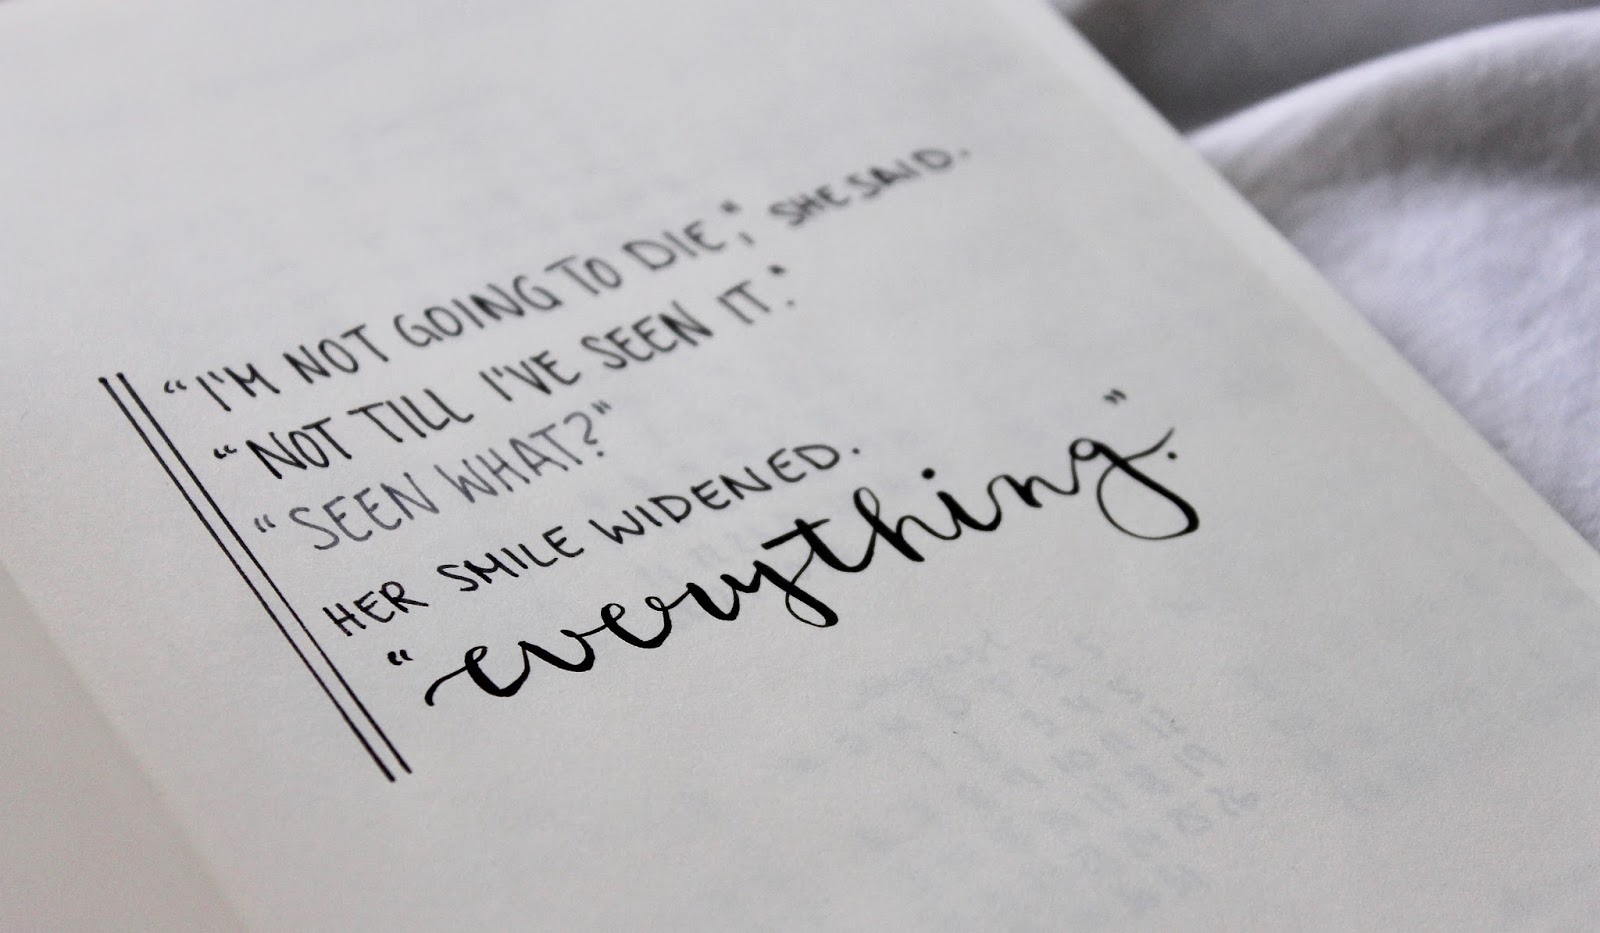 "I'M NOT GOING TO DIE", SHE SAID.
"NOT TILL I'VE SEEN IT".
"SEEN WHAT?"
HER SMILE WIDENED.
"everything".